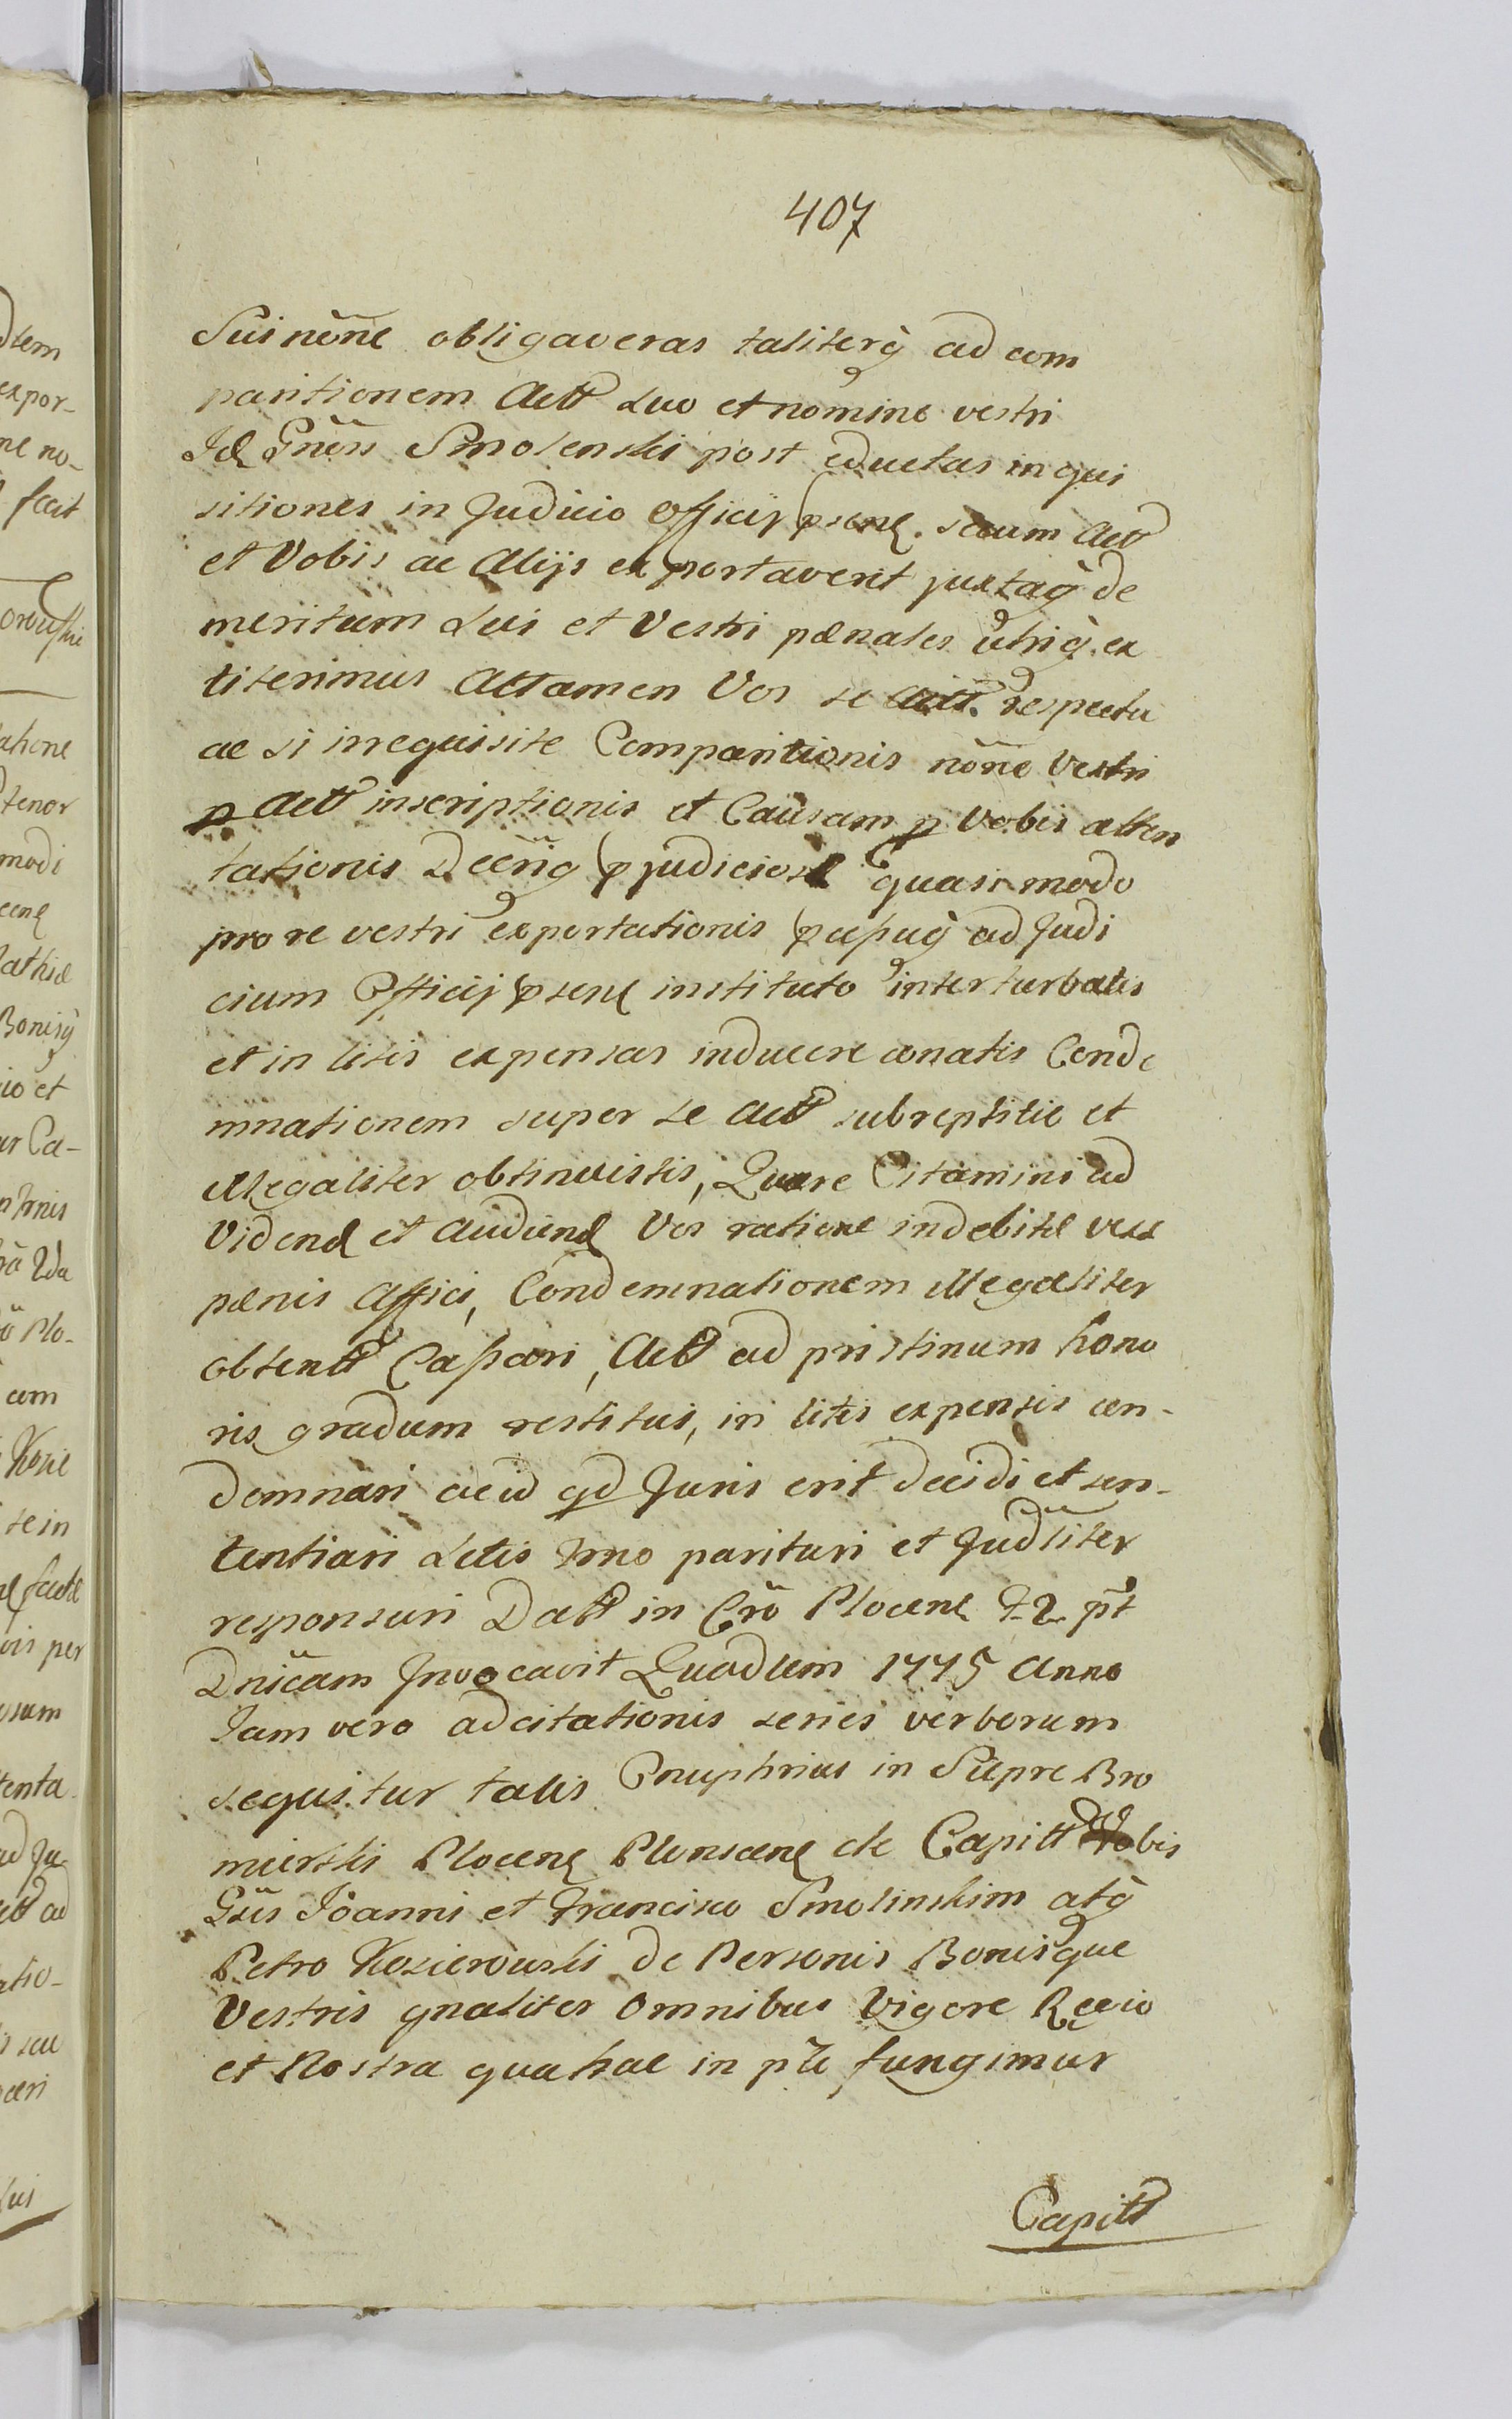 407
Sui nõne obligaveras taliterq̀ ad com
paritionem Actt suo et nomine vestri
Gnõsi Smolenski post eductas inqui
sitiones in Judicio Officij psene. secum Actt
et Vobis ac Alijs exportaverit juxtaq̀ de
meritum Sui et Vestri pænales utriq̀ ex
titerimus Attamen Vos se Actt. respectu
ac si irrequisite Comparitionis nõne Vestri
p Actt inscriptionis et Causam p Vobis atten
tationis quasi modo
pro re vestri exportationis ad Judi
cium Officij psene instituto interturbatis
et in litis expensas inducere conatis Conde
mnationem super se Actt subreptitie et
illegaliter obtinuistis, Quare Citamini ad
Vidend et Audiend Vos ratione indebite vexæ
pænis Affici, Condemnationem illegaliter
obtentt Cassari, Actt ad pristinum hono
ris gradum restitui, in litis expensis con-
demnari ac id qd Juris erit decidi et sen-
tentiari Setis Trno parituri et Judliter
responsuri Datt in Crõ Plocene F. 2. pt̃
Dnĩcam Jnvocavit Quadlem 1775 Anno
Jam vero adcitationis series verborum
sequitur talis Onuphrius in Supre Bro
mierski Plocene Plonscene etc Capitt Vobis
Gsis Joanni et Francisco Smolinskim atq̀
Petro Kozierowski de Personis Bonisque
Vestris gnaliter omnibus Vigore Regio
et Nostra qua hac in pte fungimur
Capitt